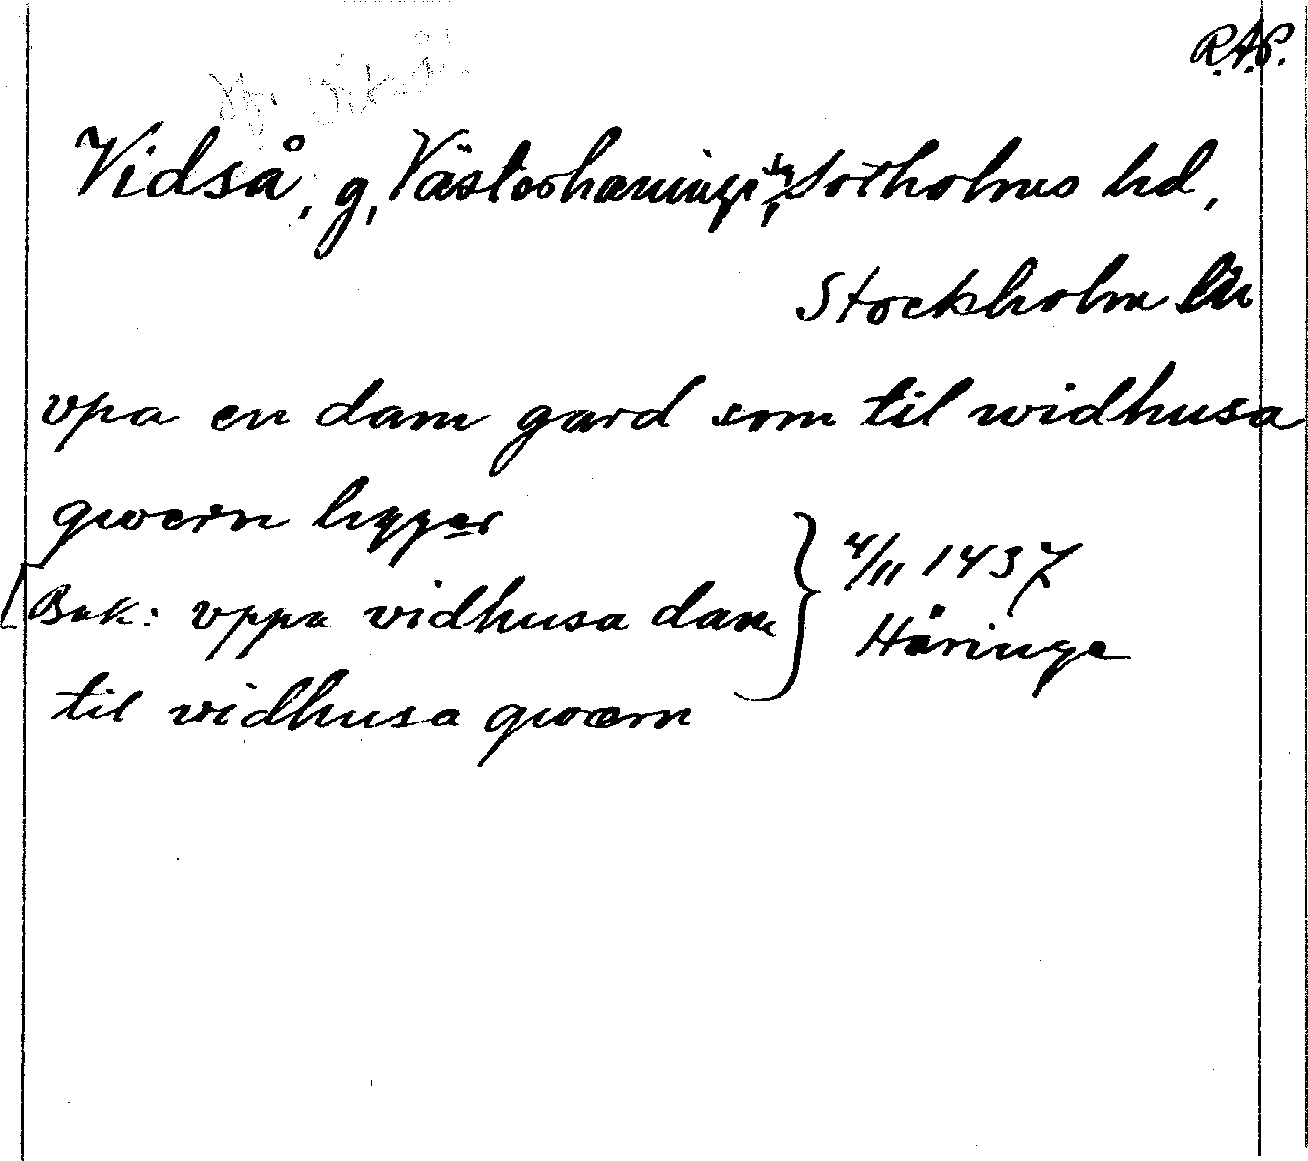 R.A.P.
Vidså, g, Västerhaninge sn, Sotholms hd,
Stockholm län
vpa en dam gard som til widhusa
qwærn ligger
[Bak: vppa vidhusa dam
til vidhusa qwærn
4/11 1437
Håringe